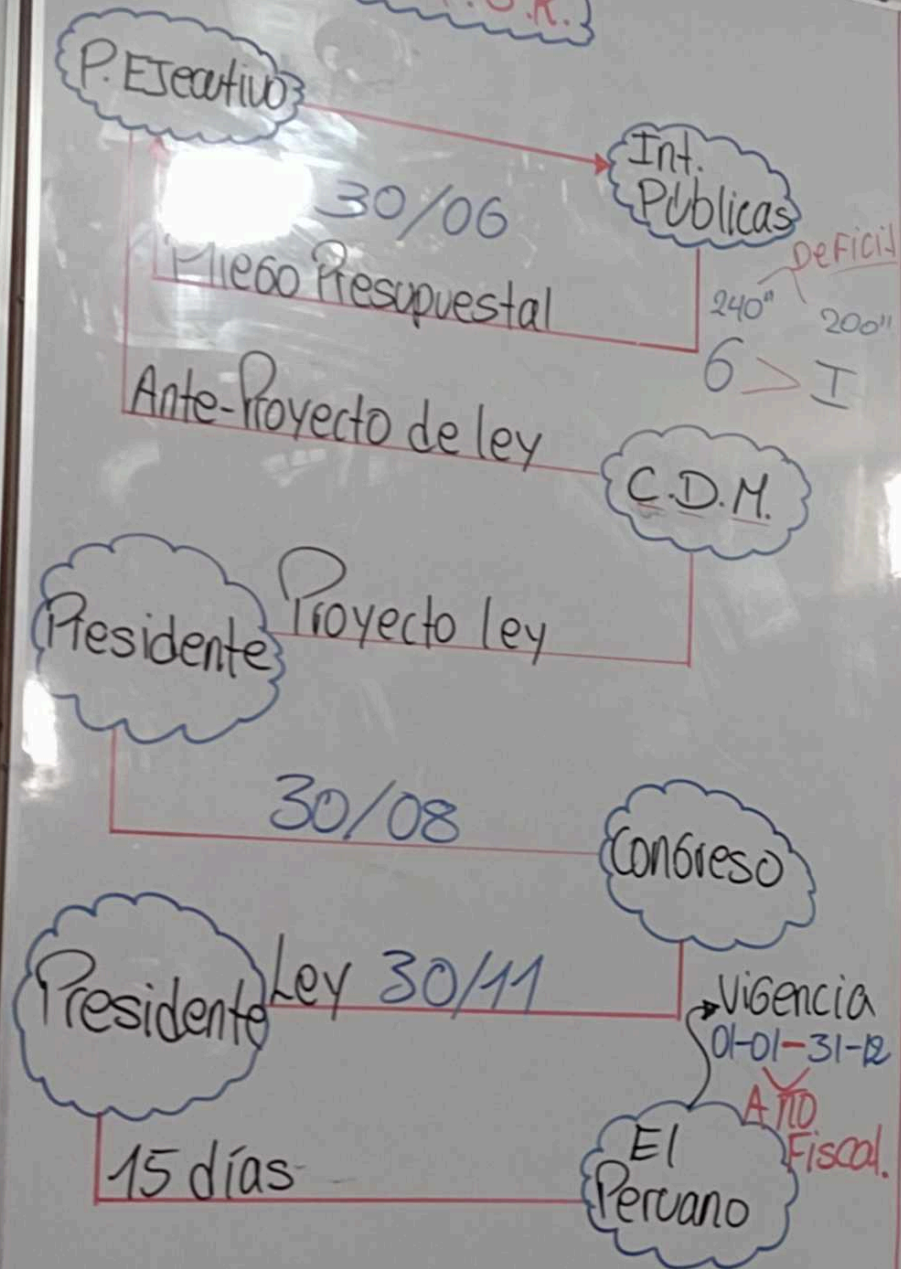 P. Ejecutivo
Int.
Públicas
30/06
Pliego Presupuestal
Deficit
240"
200"
G > I
Ante-Proyecto de ley
C.D.M.
Presidente
Proyecto ley
30/08
Congreso
Presidente
Ley 30/11
Vigencia
01-01-31-12
Año
Fiscal.
15 días
El
Peruano